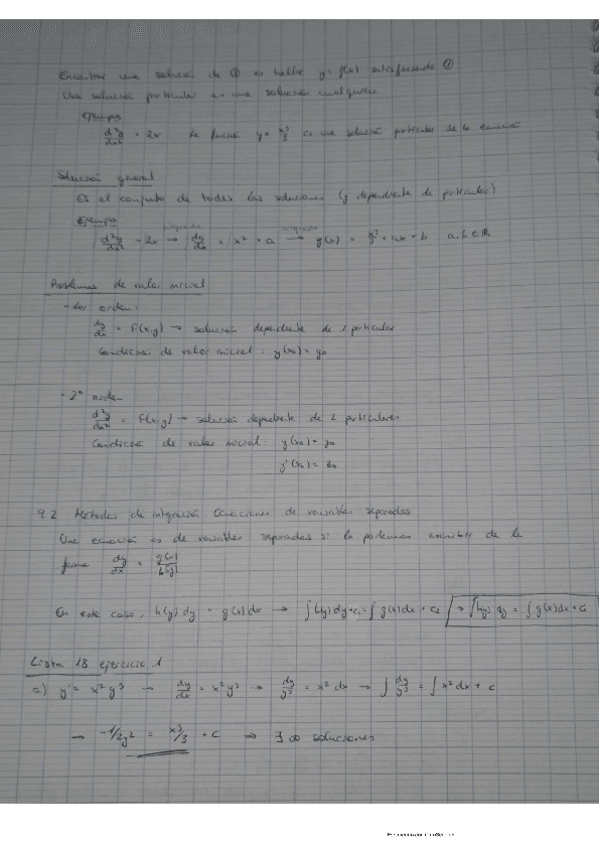 Encontrar una solución de ① es hallar y = f(x) satisfaciendo ①
Una solución particular es una solución cualquiera
Ejemplo
d²y/dx² = 2x La función y = x³/3 es una solución particular de la ecuación
Solución general
Es el conjunto de todas las soluciones (y dependiente de
Ejemplo
d²y/dx² = 2x → dy/dx = x² + a → y(x) = x³/3 + ax + b a,b ∈ ℝ
Problemas de valor inicial
- 1er orden:
dy/dx = F(x,y) → solución dependiente de 1
Condición de valor inicial: y(x₀) = y₀
- 2º orden
d²y/dx² = F(x,y) → solución dependiente de 2
Condición de valor inicial: y(x₀) = y₀
y'(x₀) = z₀
9.2 Métodos de integración Ecuaciones de variables separadas
Una ecuación es de variables separadas si la podemos escribir de la
forma dy/dx = g(x)/h(y)
En este caso, h(y) dy = g(x) dx → ∫h(y) dy + c₁ = ∫g(x) dx + c₂ → ∫h(y) dy = ∫g(x) dx + C
Lista 18 ejercicio 1
a) y' = x² y³ → dy/dx = x² y³ → dy/y³ = x² dx → ∫ dy/y³ = ∫ x² dx + c
→ -1/2y² = x³/3 + C ⇒ ∃ ∞ soluciones